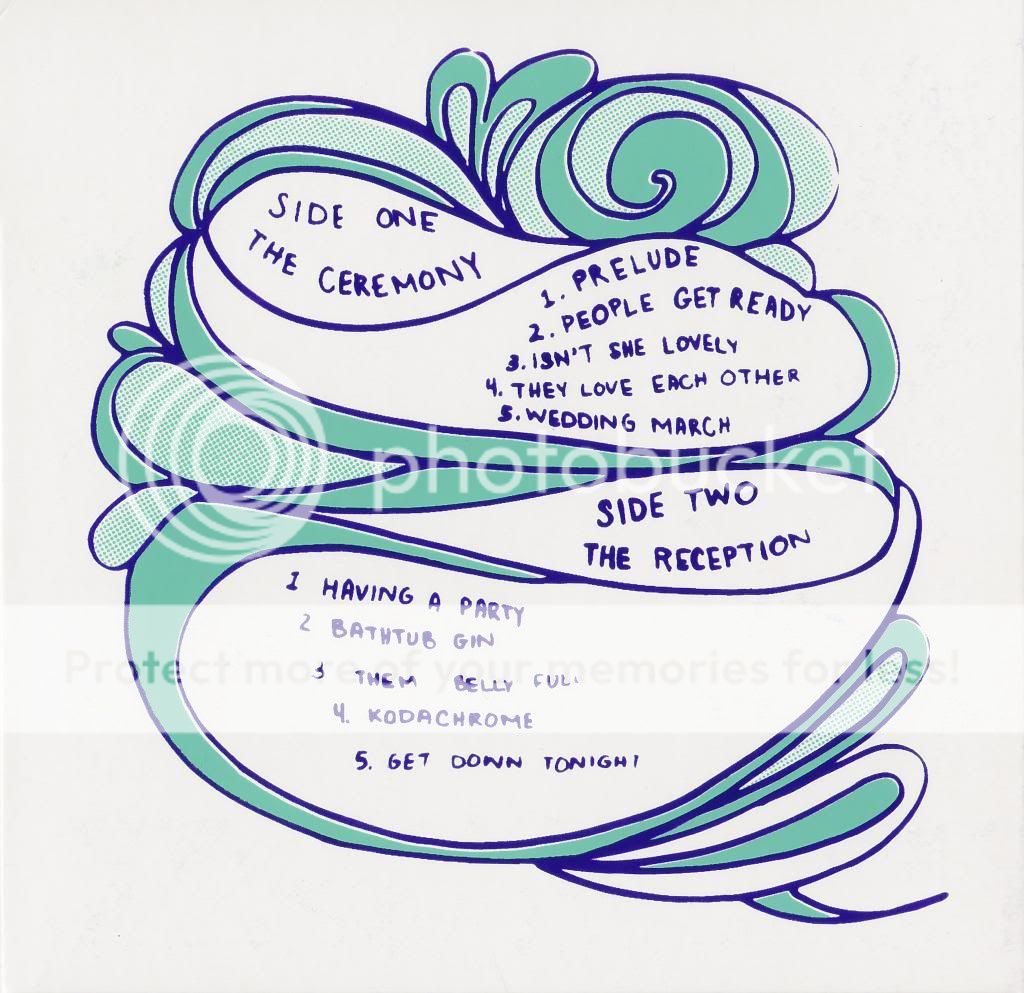 SIDE ONE
THE CEREMONY
1. PRELUDE
2. PEOPLE GET READY
3. ISN'T SHE LOVELY
4. THEY LOVE EACH OTHER
5. WEDDING MARCH
photobucket
SIDE TWO
THE RECEPTION
1 HAVING A PARTY
2 BATHTUB GIN
Protect more of your memories for less!
3 THEM BELLY FULL
4. KODACHROME
5. GET DOWN TONIGHT